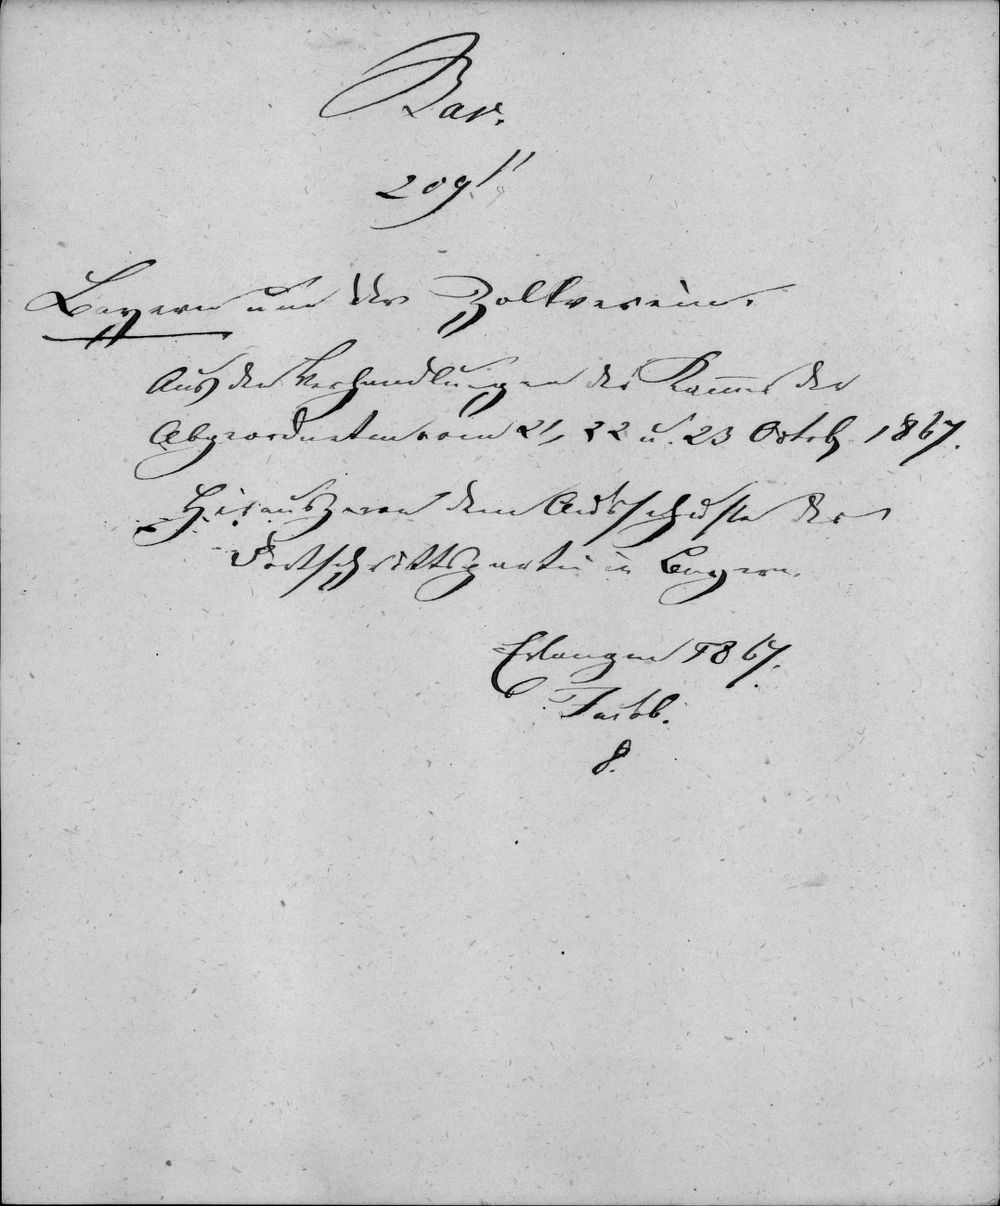 Bav.
209 11
Bayern und der Zollverein.
Aus den Verhandlungen der Kammer der
Abgeordneten vom 21, 22 u. 23 Octob. 1867.
Herausgegeben von dem Ausschusse der
Fortschrittspartei in Bayern.
Erlangen 1867.
Jacob.
8.